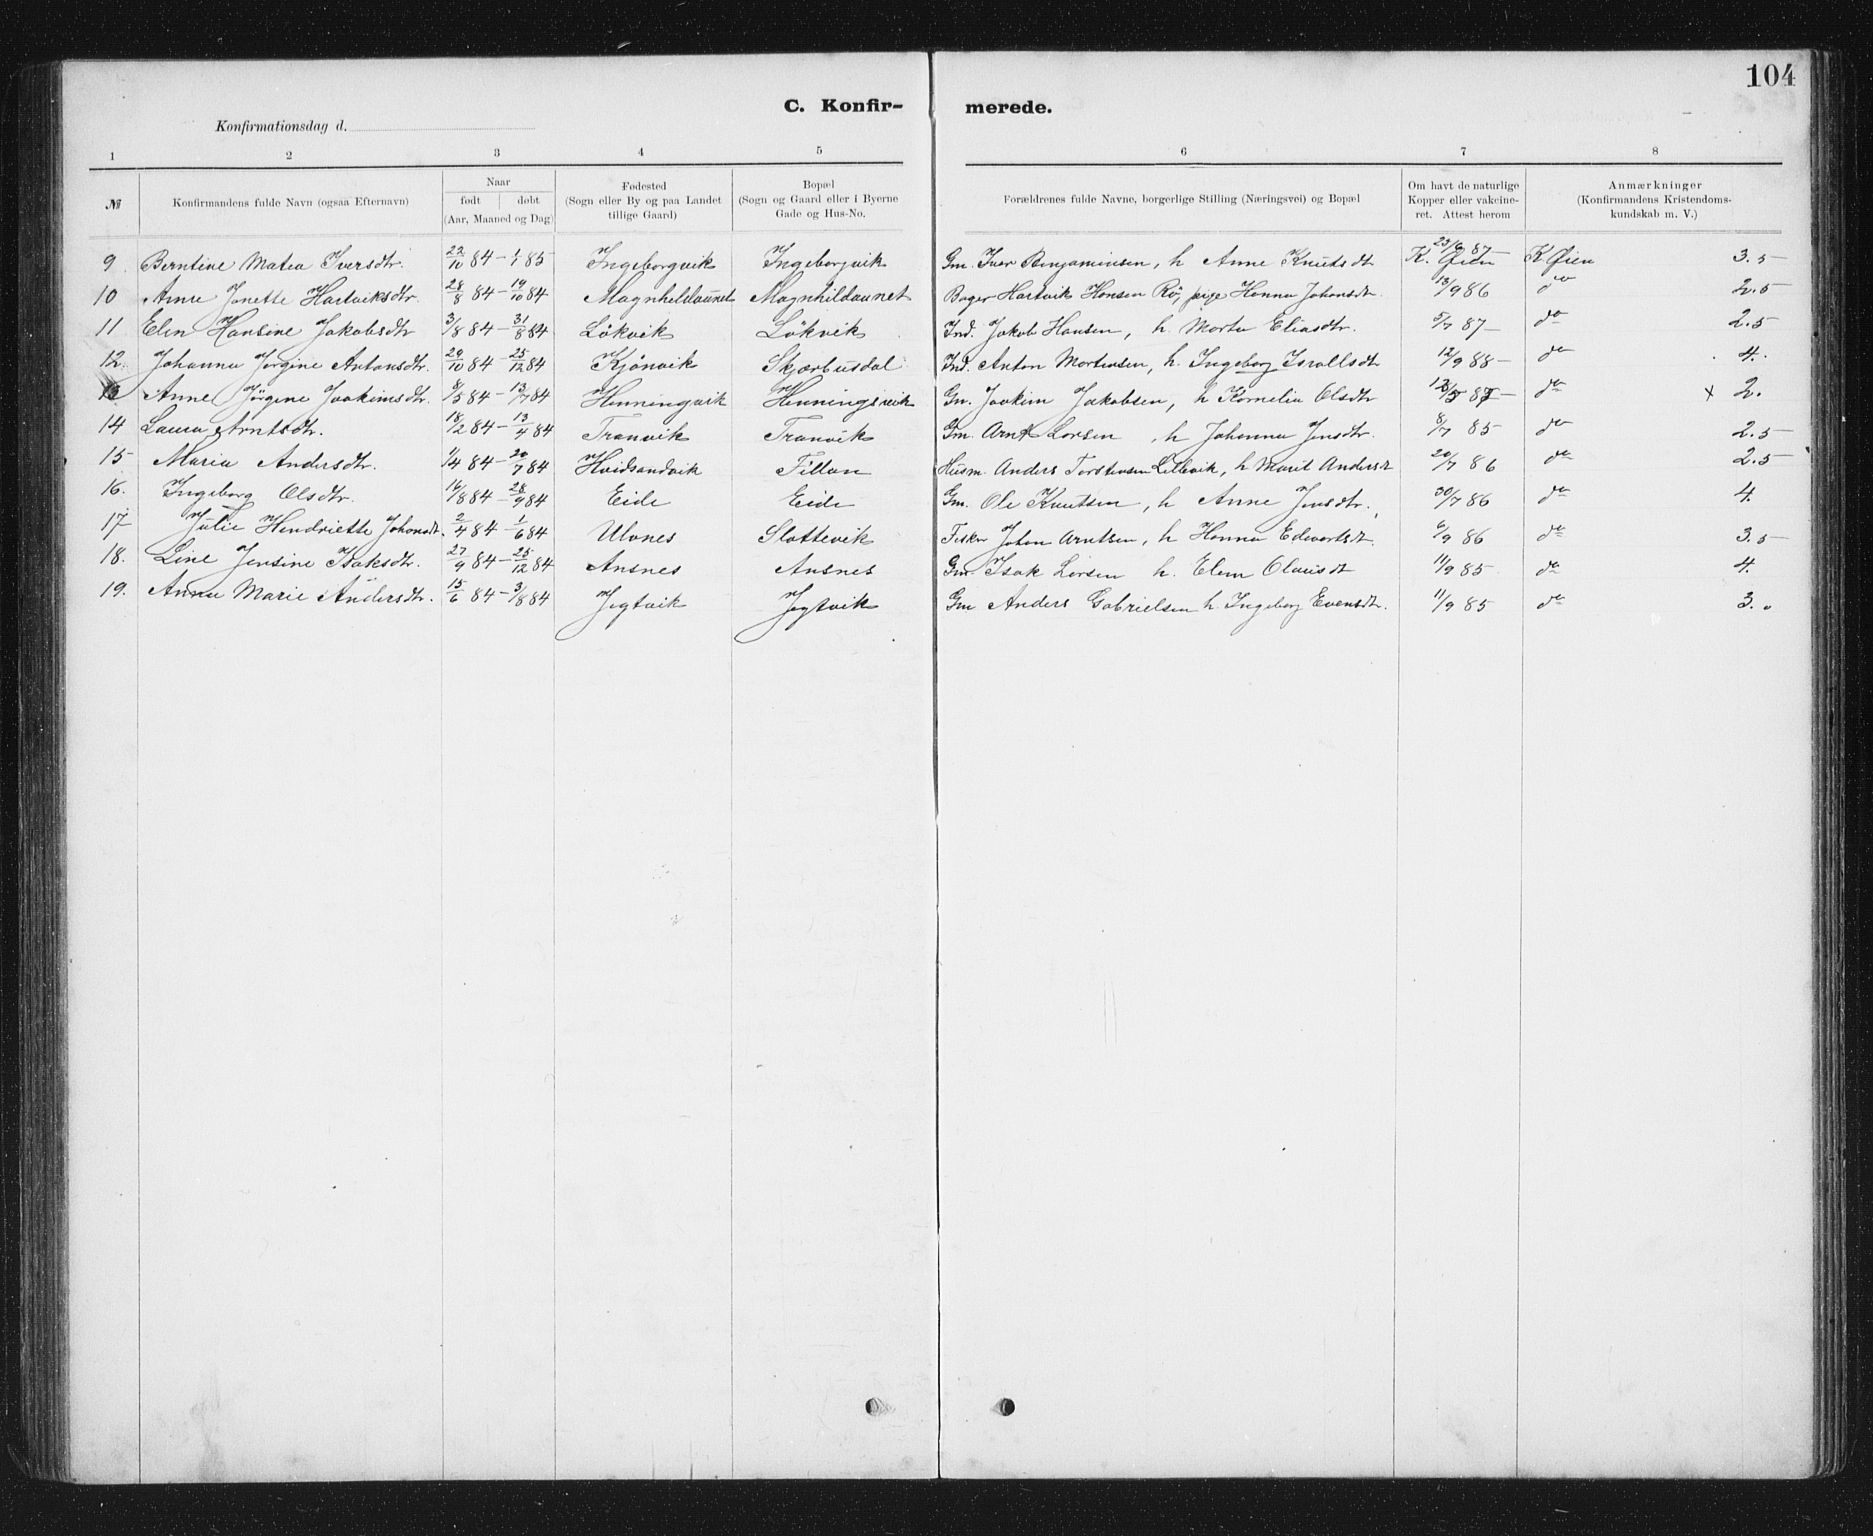 104
C. Konfir- merede.
Konfirmationsdag d.
1 2 3 4 5 6 7 8
№ Konfirmandens fulde Navn (ogsaa Efternavn) Naar født døbt (Aar, Maaned og Dag) Fødested (Sogn eller By og paa Landet tillige Gaard) Bopæl (Sogn og Gaard eller i Byerne Gade og Hus-No. Forældrenes fulde Navne, borgerlige Stilling (Næringsvei) og Bopæl Om havt de naturlige Kopper eller vakcineret. Attest herom Anmærkninger (Konfirmandens Kristendomskundskab m. V.)
9 Berntine Matea Iversdtr. 22/10 84 – 1/1 85 Ingeborgvik Ingeborgvik Gm. Iver Benjaminsen, h Anne Knutsdt 23/6 87 K. Øien K Øien 3.5
10 Anne Jonette Hartviksdtr. 28/8 84 – 19/10 84 Magnhildaunet Magnhildaunet Bager Hartvik Hansen Rö, pige Hanna Johansdt. 13/9 86 do 2.5
11 Elen Hansine Jakobsdtr 3/8 84 – 31/8 84 Lökvik Lökvik Ind. Jakob Hansen, h. Marta Eliasdtr. 5/7 87 – do 2.5
12. Johanna Jørgine Antonsdtr. 29/10 84 – 25/12 84 Kjönvik Skjærbusdal Ind. Anton Mortensen, h. Ingeborg Israllsdt 12/9 88 – do 4.
13. Anne Jörgine Joakimsdtr. 8/5 84 – 13/7 84 Henningvik Henningsvik Gm. Joakim Jakobsen, h Kornelia Olsdtr do x 2.
14 Laura Arntsdtr. 18/2 84 – 13/4 84 Tranvik Tranvik Gm. Arnt Larsen, h Johanna Jensdtr. 8/7 85 do 2.5
15 Maria Andersdtr. 1/4 84 – 20/7 84 Hvidsandvik Fillan Husm. Anders Torstensen Lillevik, h Marit Andersdt 20/7 86 do 2.5
16. Ingeborg Olsdtr. 16/8 84 – 28/9 84 Eide Eide Gm. Ole Knutsen, h Anne Jensdtr. 30/7 86 do 4
17 Julie Hendriette Johansdt. 2/4 84 – 1/6 84 Ulvnes Slottevik Fisker Johan Arntsen, h Hanna Edvartsdt. 6/9 86 do 3.5
18. Line Jensine Isaksdtr. 27/9 84 – 25/12 84 Ansnes Ansnes Gm. Isak Larsen h. Elen Olausdt 11/9 85 do 4.
19. Anna Marie Andersdtr. 15/6 84 – 3/8 84 Jegtvik Jegtvik Gm Anders Gabrielsen h. Ingeborg Evensdtr. 11/9 85 do 3.0